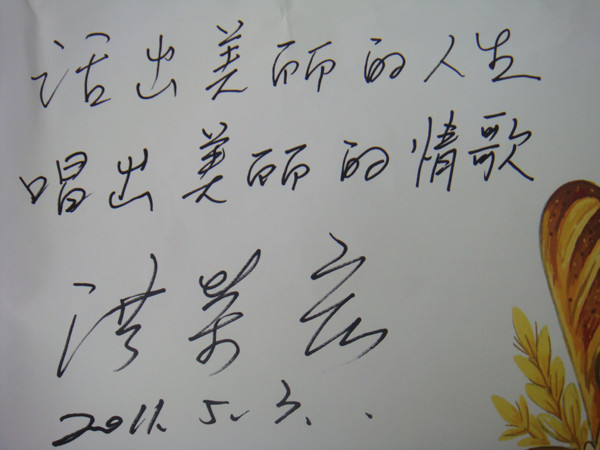 话出美丽的人生
唱出美丽的情歌
洪荣宏
2011.5.3.